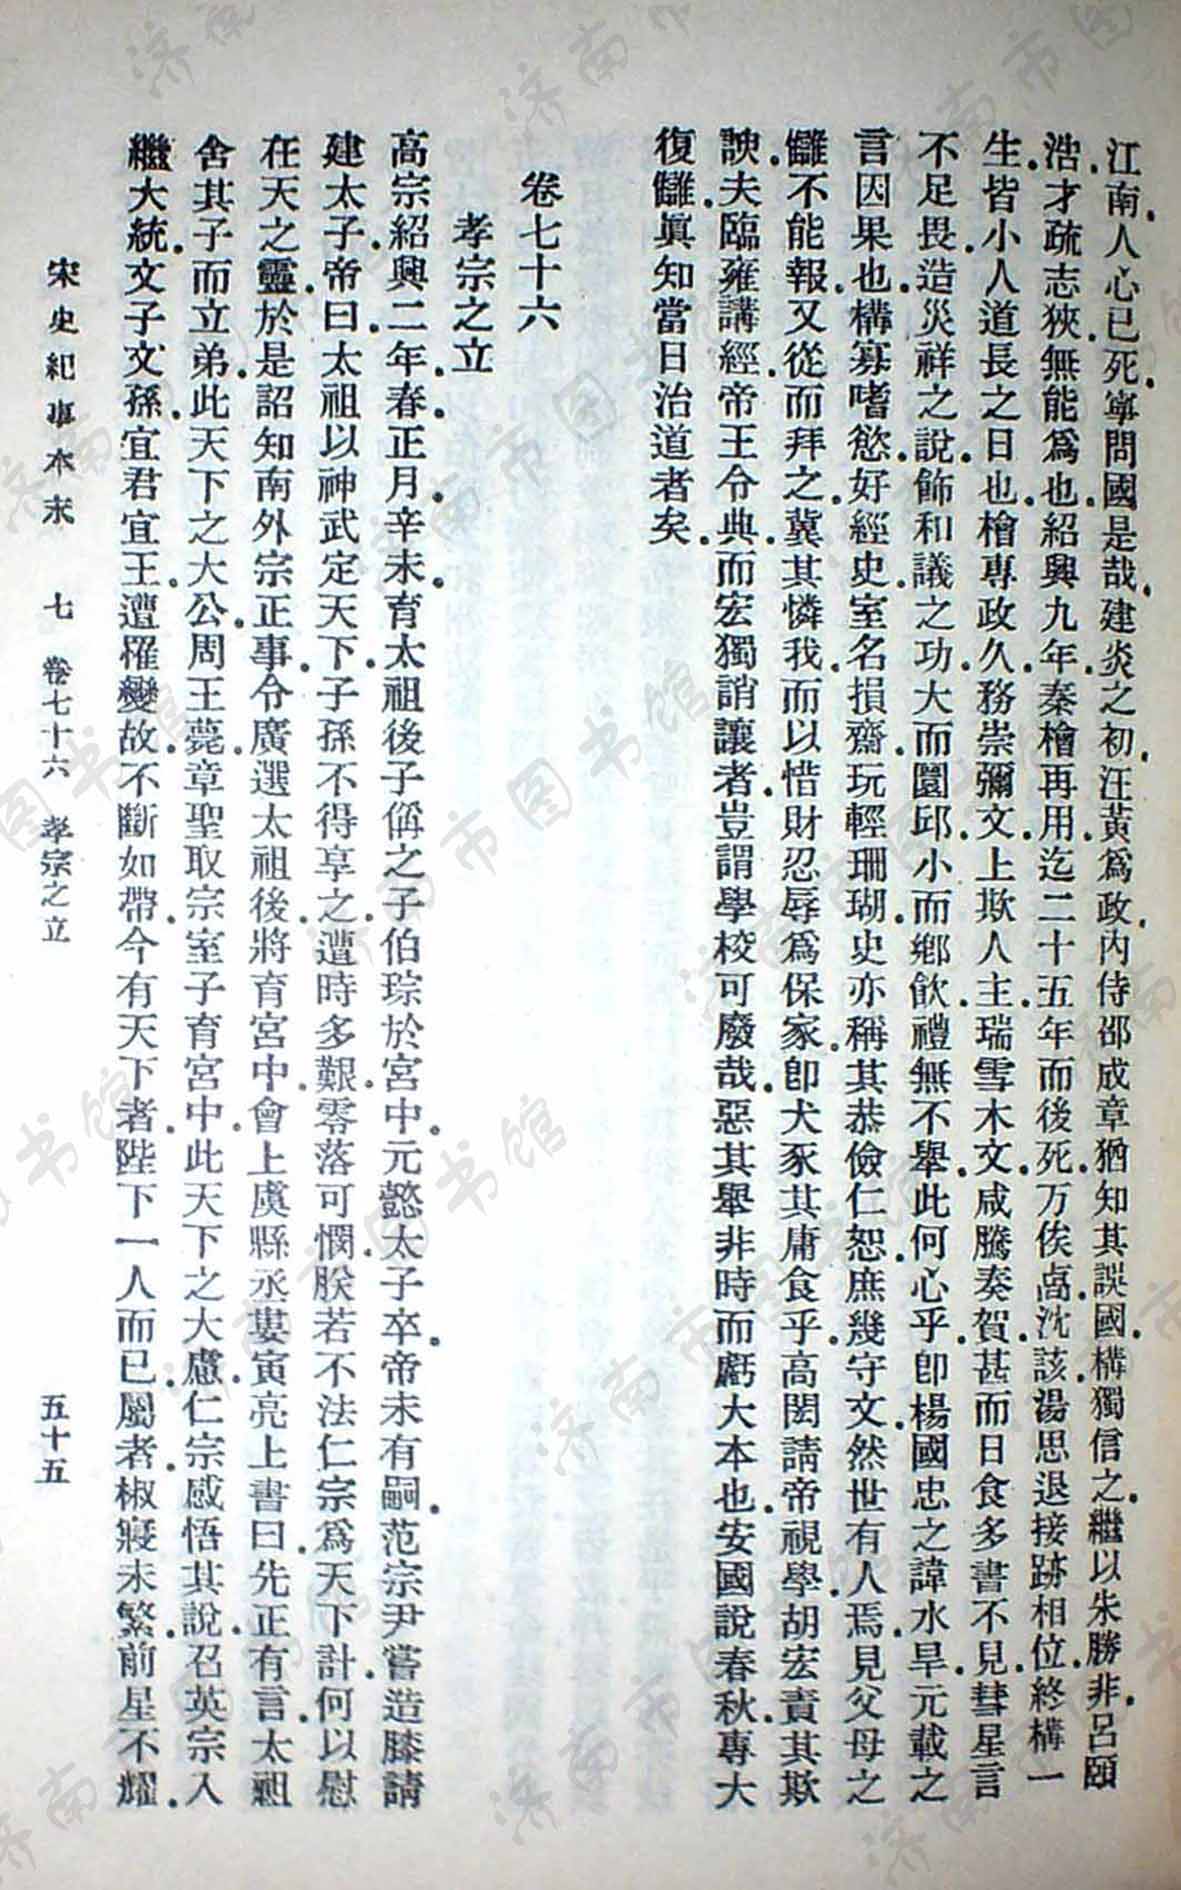 江南人心已死.寧問國是哉.建炎之初.汪黃爲政.內侍邵成章猶知其誤國.構獨信之.繼以朱勝非.呂頤
浩.才疏志狹.無能爲也.紹興九年.秦檜再用.迄二十五年而後死.万俟卨.沈該.湯思退接跡相位.終構一
生.皆小人道長之日也.檜專政久.務崇彌文.上欺人主.瑞雪木文.咸騰奏賀.甚而日食多書不見.彗星言
不足畏.造災祥之說.飾和議之功.大而圜邱.小而鄉飲.禮無不舉.此何心乎.卽楊國忠之諱水旱.元載之
言因果也.構寡嗜慾.好經史.室名損齋.玩輕珊瑚.史亦稱其恭儉仁恕.庶幾守文.然世有人焉.見父母之
讎不能報.又從而拜之.冀其憐我.而以惜財忍辱爲保家.卽犬豕其庸食乎.高閌請帝視學.胡宏責其欺
諛.夫臨雍講經.帝王令典.而宏獨誚讓者.豈謂學校可廢哉.惡其舉非時而虧大本也.安國說春秋.專大
復讎.眞知當日治道者矣.
卷七十六
孝宗之立
高宗紹興二年春正月辛未.育太祖後子偁之子伯琮於宮中.元懿太子卒.帝未有嗣.范宗尹嘗造膝請
建太子.帝曰.太祖以神武定天下.子孫不得享之.遭時多艱.零落可憫.朕若不法仁宗.爲天下計.何以慰
在天之靈.於是詔知南外宗正事令廣選太祖後.將育宮中.會上虞縣丞婁寅亮上書曰.先正有言.太祖
舍其子而立弟.此天下之大公.周王薨.章聖取宗室子育宮中.此天下之大慮.仁宗感悟其說.召英宗入
繼大統.文子文孫.宜君宜王.遭罹變故.不斷如帶.今有天下者.陛下一人而已.屬者椒寢未繁.前星不耀.
宋史紀事本末 七 卷七十六 孝宗之立 五十五
济南市图书馆